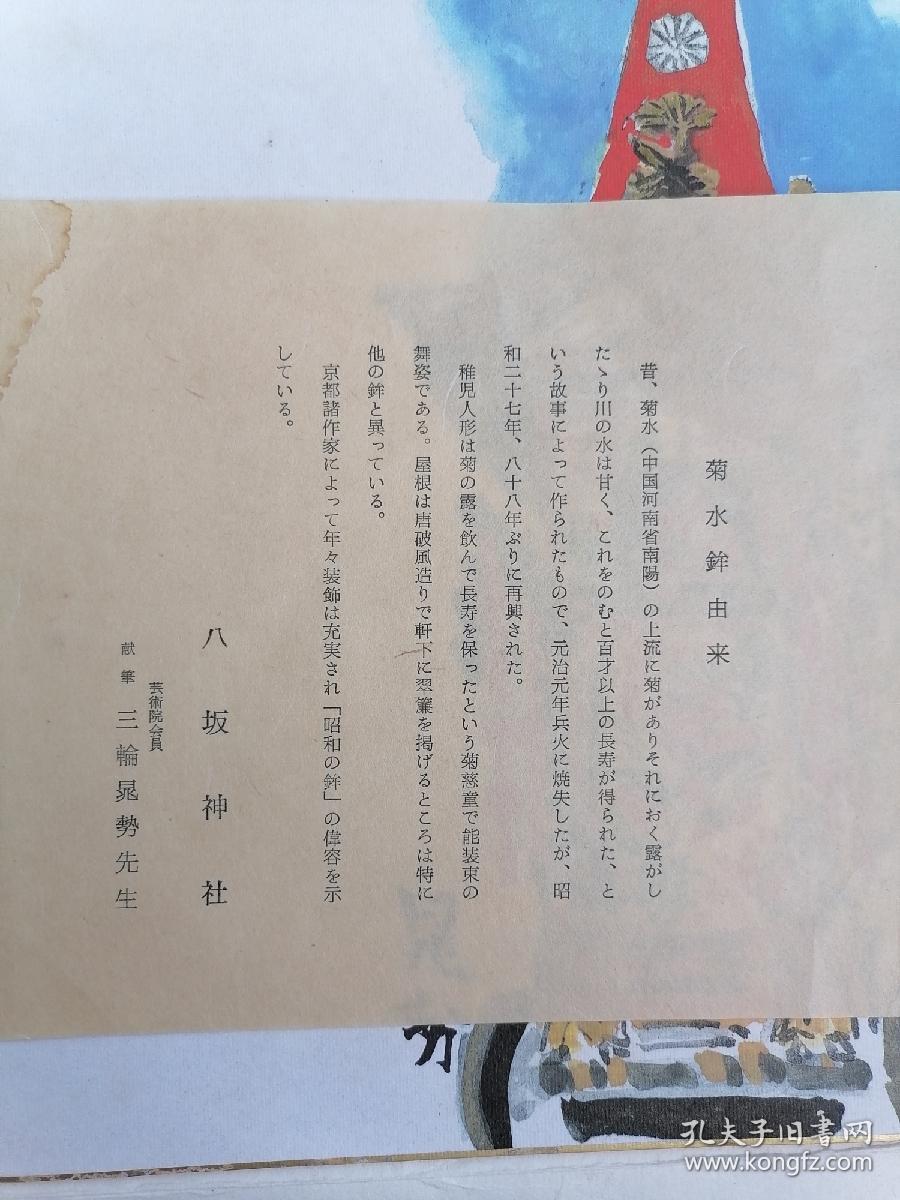 菊水鉾由来
昔、菊水（中国河南省南陽）の上流に菊がありそれにおく露がし
たゝり川の水は甘く、これをのむと百才以上の長寿が得られた、と
いう故事によって作られたもので、元治元年兵火に焼失したが、昭
和二十七年、八十八年ぶりに再興された。
稚児人形は菊の露を飲んで長寿を保ったという菊慈童で能装束の
舞姿である。屋根は唐破風造りで軒下に翠簾を掲げるところは特に
他の鉾と異っている。
京都諸作家によって年々装飾は充実され「昭和の鉾」の偉容を示
している。
八坂神社
芸術院会員
献筆 三輪晁勢先生
孔夫子旧书网
www.kongfz.com